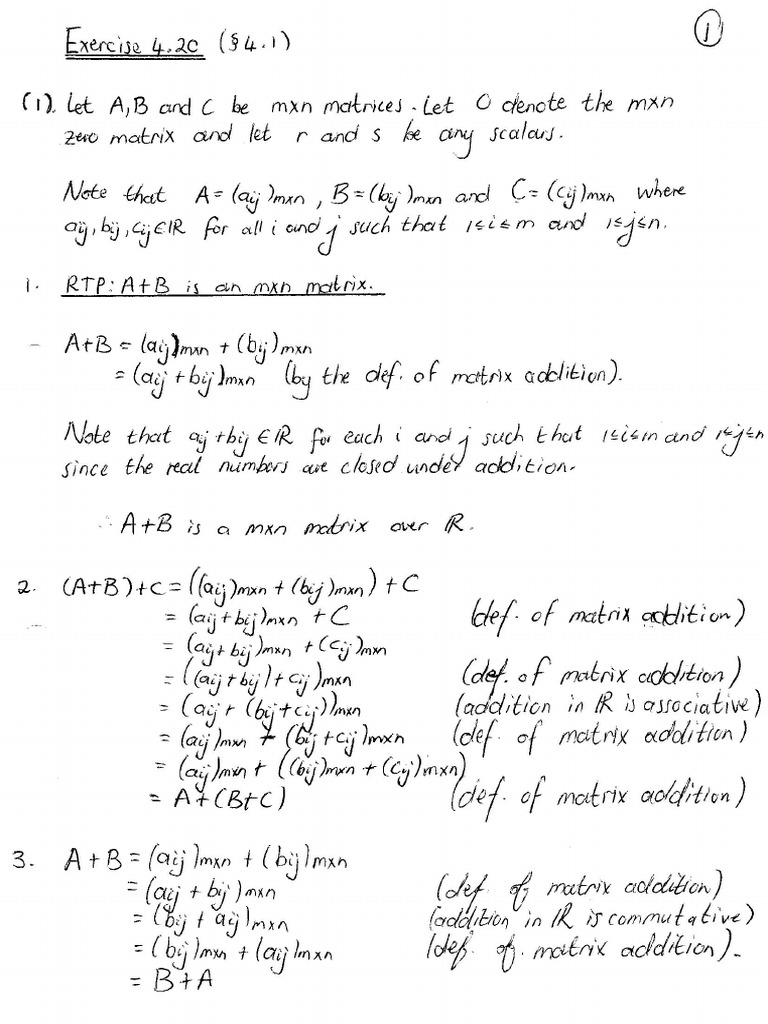 Exercise 4.2C (§4.1)
1
(1). Let A,B and C be mxn matrices. Let O denote the mxn
zero matrix and let r and s be any scalars.
Note that A=(aij)mxn, B=(bij)mxn and C=(cij)mxn where
aij, bij, cij∈ℝ for all i and j such that 1≤i≤m and 1≤j≤n.
1. RTP: A+B is an mxn matrix.
A+B = (aij)mxn + (bij)mxn
= (aij + bij)mxn (by the def. of matrix addition).
Note that aij+bij ∈ℝ for each i and j such that 1≤i≤m and 1≤j≤n
since the real numbers are closed under addition.
∴ A+B is a mxn matrix over ℝ.
2. (A+B)+C = ((aij)mxn + (bij)mxn) + C
= (aij+bij)mxn + C (def. of matrix addition)
= (aij+bij)mxn + (cij)mxn
= ((aij+bij)+cij)mxn (def. of matrix addition)
= (aij + (bij+cij))mxn (addition in ℝ is associative)
= (aij)mxn + (bij+cij)mxn (def. of matrix addition)
= (aij)mxn + ((bij)mxn + (cij)mxn)
= A+(B+C) (def. of matrix addition)
3. A+B = (aij)mxn + (bij)mxn
= (aij + bij)mxn (def. of matrix addition)
= (bij + aij)mxn (addition in ℝ is commutative)
= (bij)mxn + (aij)mxn (def. of matrix addition).
= B+A